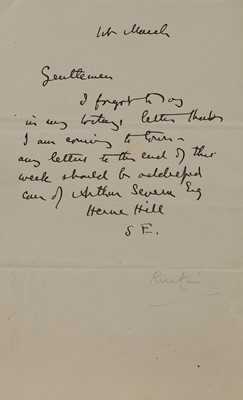 1st March
Gentlemen
I forgot to say
in my today's letter that
I am coming to town -
any letters to the end of this
week should be addressed
care of Arthur Severn Esq
Herne Hill
S E.
Ruskin